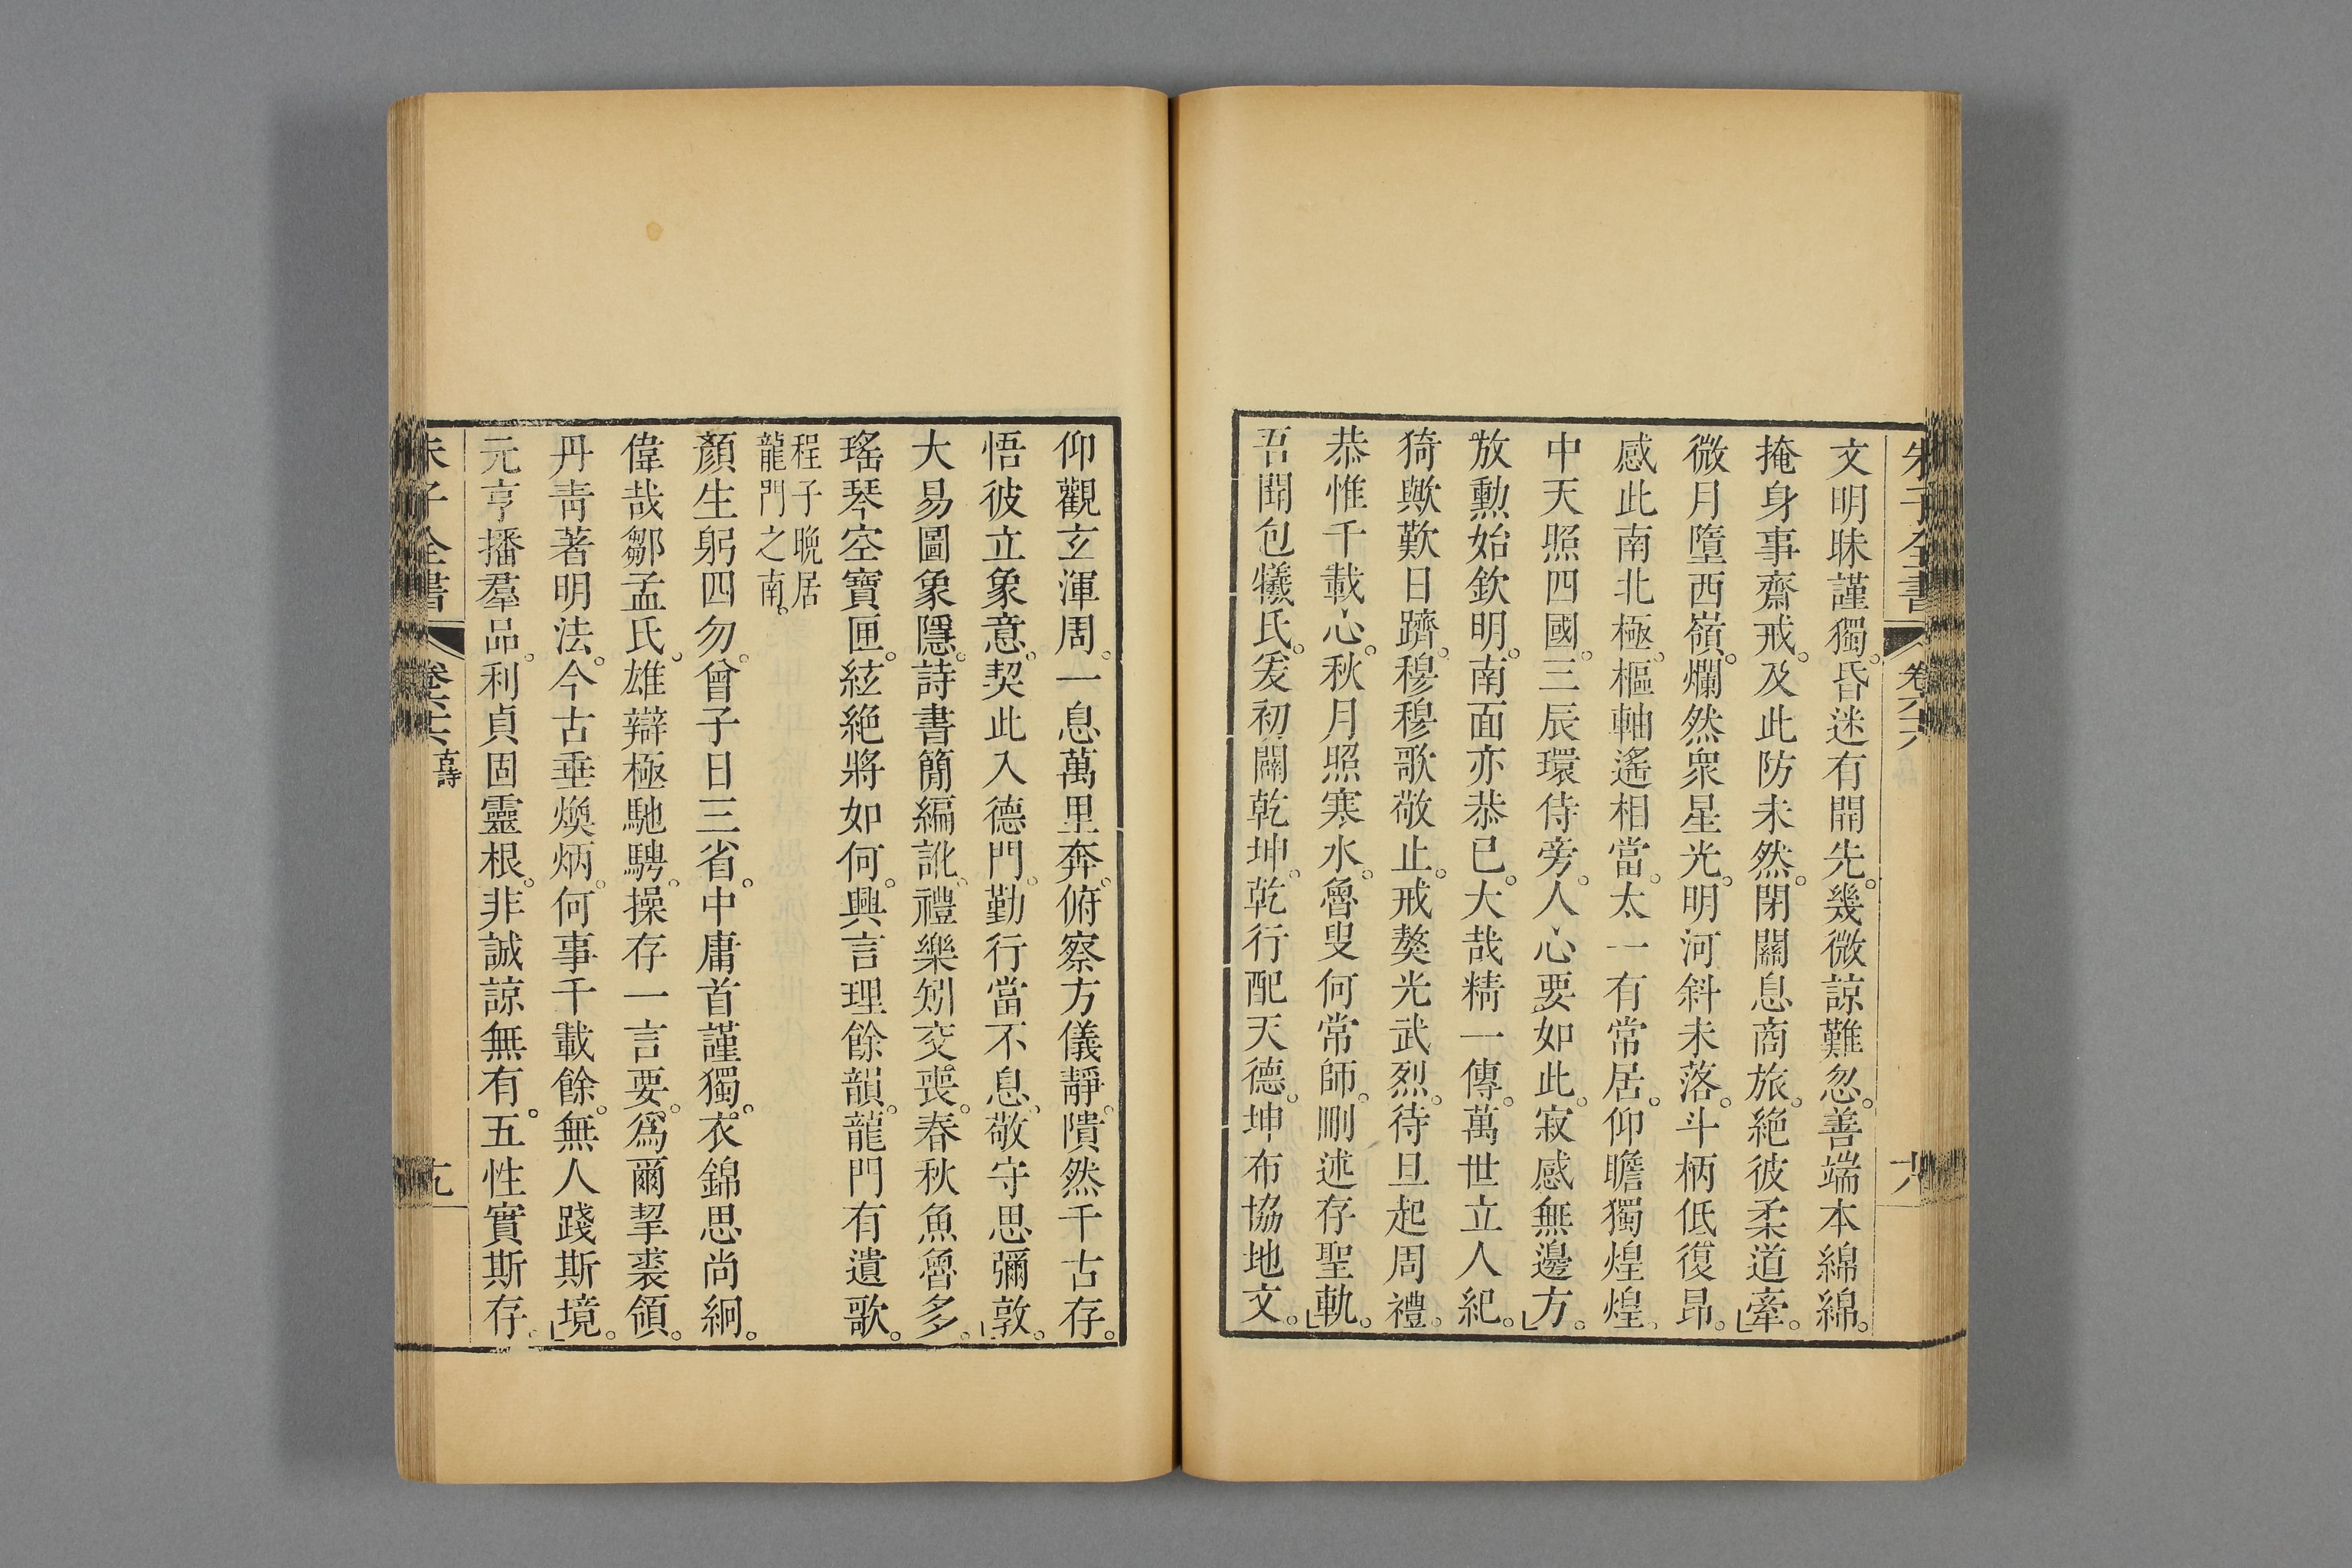 朱子全書 卷六六 十八
文明昧謹獨。昏迷有開先。幾微諒難忽。善端本綿綿。
掩身事齋戒。及此防未然。閉關息商旅。絕彼柔道牽。
微月墮西嶺。爛然衆星光。明河斜未落。斗柄低復昂。
感此南北極。樞軸遙相當。太一有常居。仰瞻獨煌煌。
中天照四國。三辰環侍旁。人心要如此。寂感無邊方。
放勲始欽明。南面亦恭已。大哉精一傳。萬世立人紀。
猗歟歎日躋。穆穆歌敬止。戒獒光武烈。待旦起周禮。
恭惟千載心。秋月照寒水。魯叟何常師。刪述存聖軌。
吾聞包犧氏。爰初闢乾坤。乾行配天德。坤布協地文。
仰觀玄渾周。一息萬里奔。俯察方儀靜。隤然千古存。
悟彼立象意。契此入德門。勤行當不息。敬守思彌敦。
大易圖象隱。詩書簡編訛。禮樂矧交喪。春秋魚魯多。
瑤琴空寶匣。絃絕將如何。興言理餘韻。龍門有遺歌。
程子晚居
龍門之南。
顏生躬四勿。曾子日三省。中庸首謹獨。衣錦思尚絅。
偉哉鄒孟氏。雄辯極馳騁。操存一言要。爲爾挈裘領。
丹青著明法。今古垂煥炳。何事千載餘。無人踐斯境。
元亨播羣品。利貞固靈根。非誠諒無有。五性實斯存。
朱子全書 卷六十六 古詩 十九